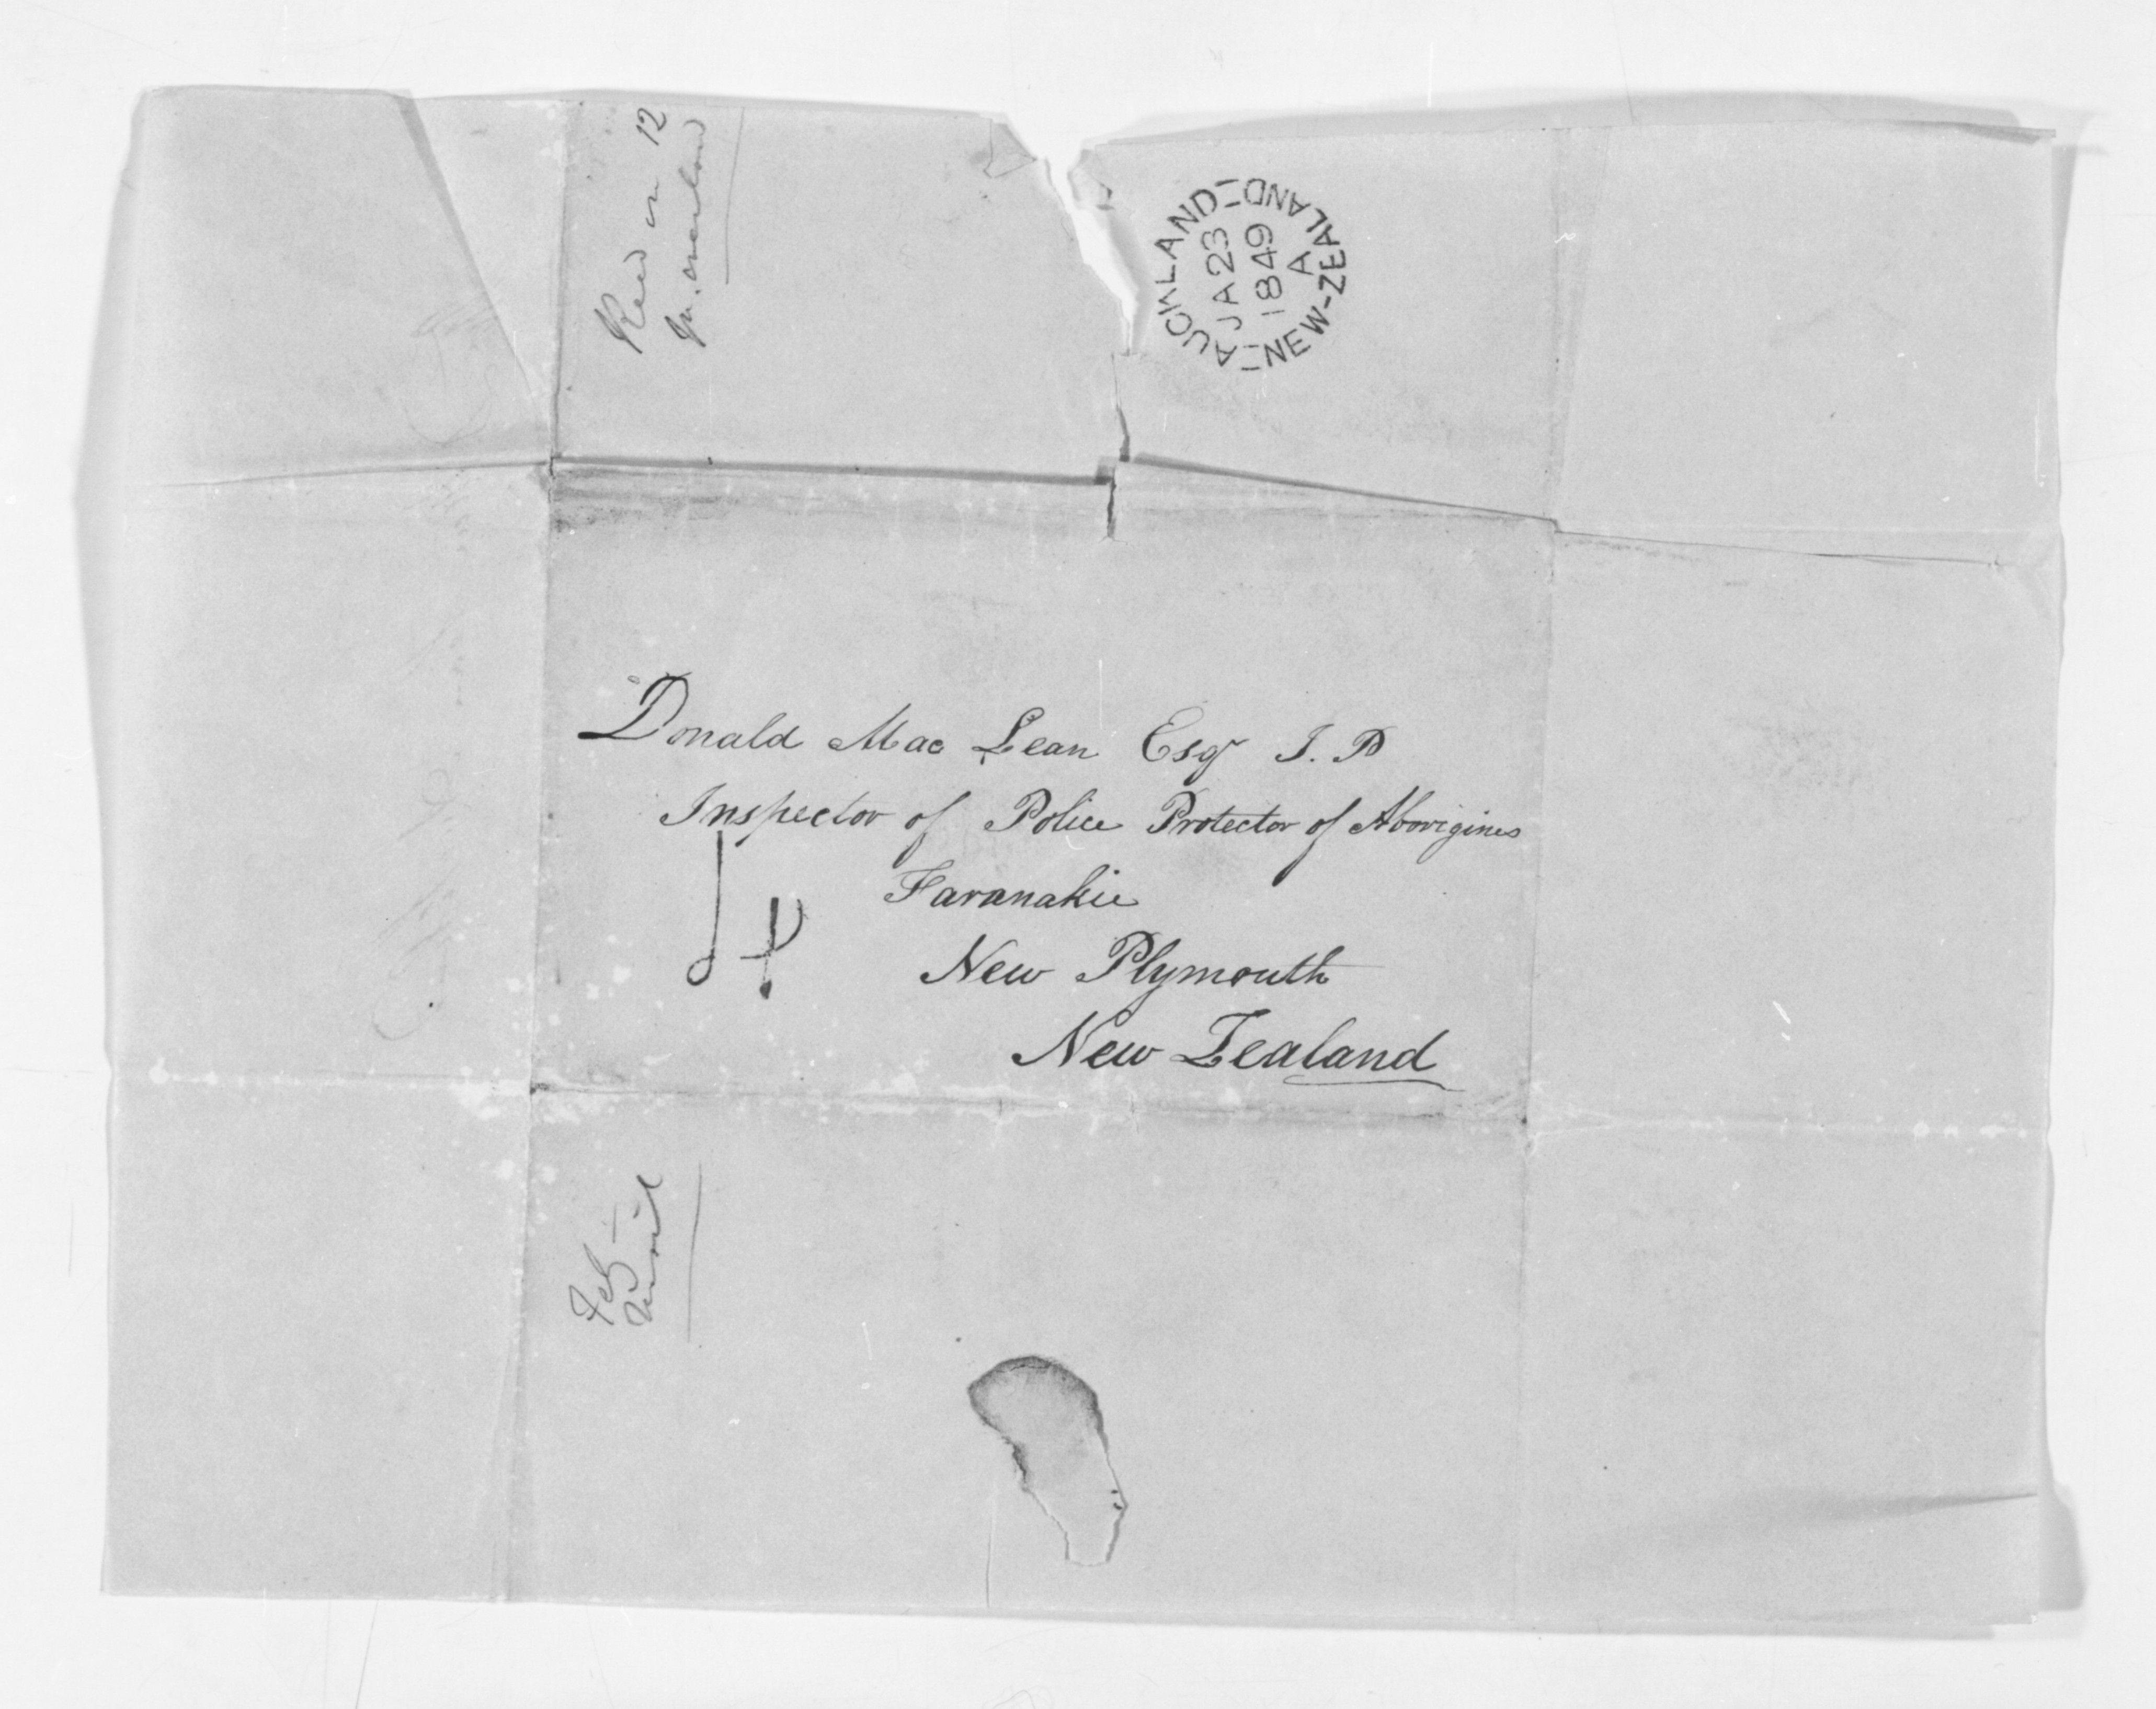 Recd on 12
AUCKLAND
JA 23
1849
A
NEW-ZEALAND
Donald Mac Lean Esqr J. P
Inspector of Police Protector of Aborigines
Taranakie
New Plymouth
New Zealand
1/4
Feby